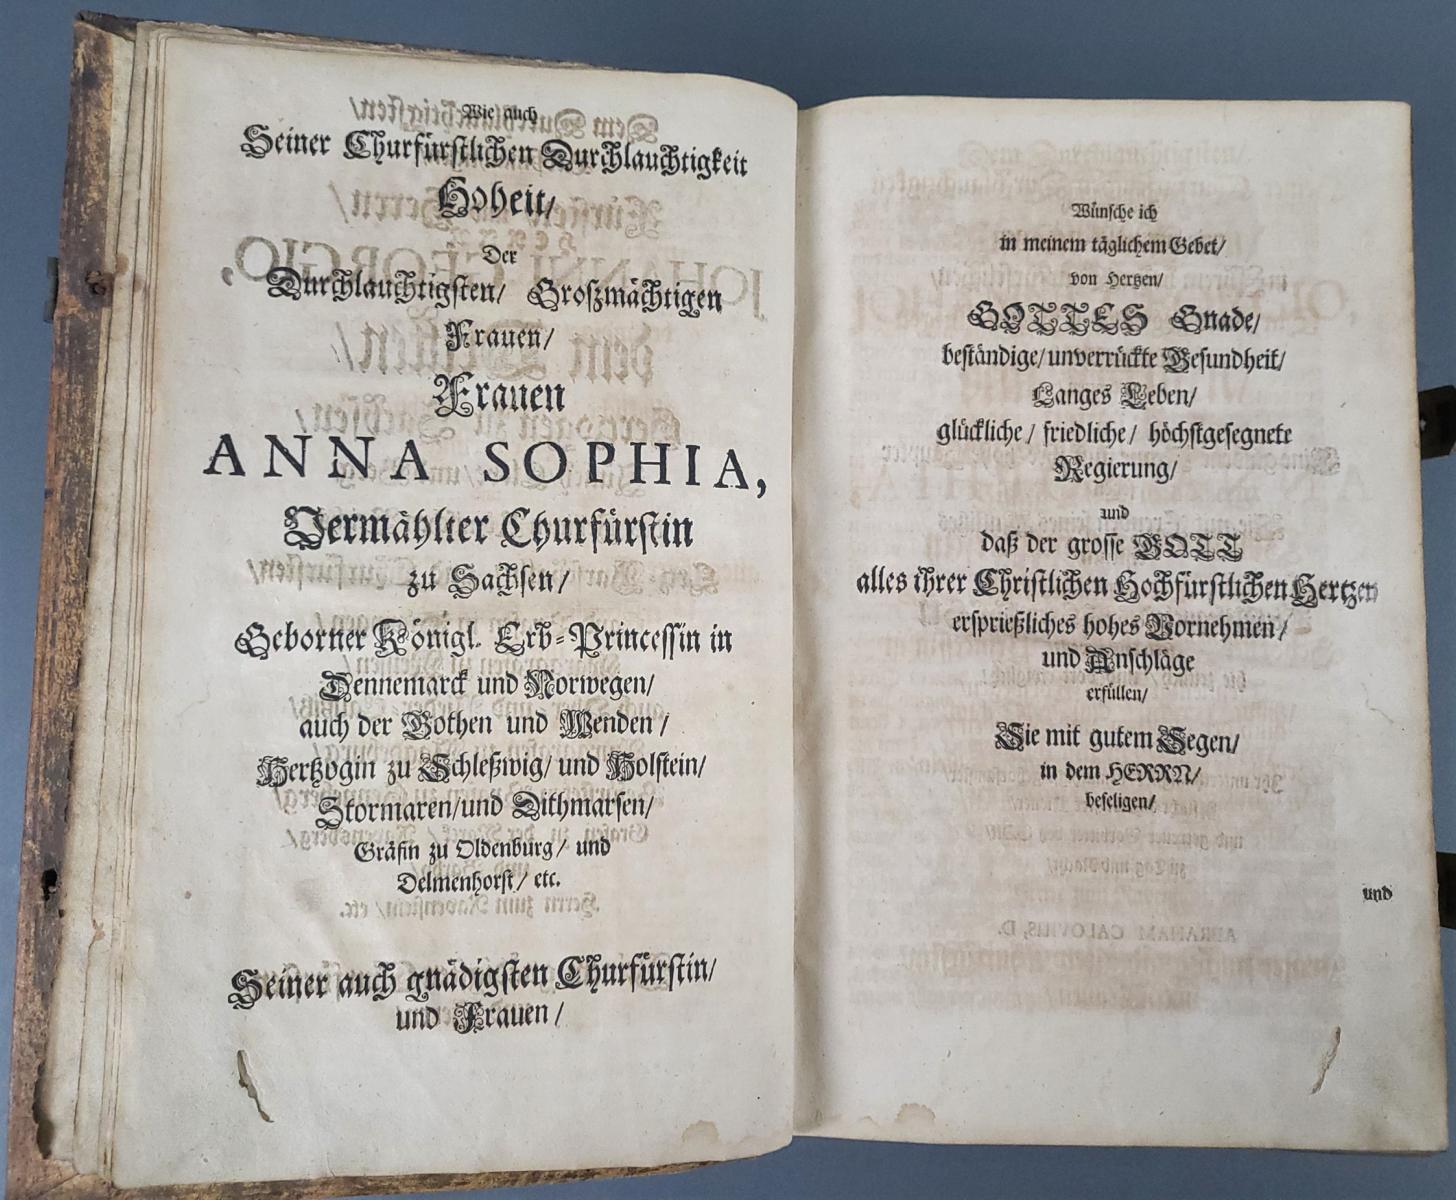 Wie auch
Seiner Churfürstlichen Durchlauchtigkeit
Hoheit/
Der
Durchlauchtigsten/ Großmächtigen
Frauen/
Frauen
ANNA SOPHIA,
Vermählter Churfürstin
zu Sachsen/
Geborner Königl. Erb-Princessin in
Dennemarck und Norwegen/
auch der Gothen und Wenden/
Hertzogin zu Schleßwig/ und Holstein/
Stormaren/ und Dithmarsen/
Gräfin zu Oldenburg/ und
Delmenhorst/ etc.
Seiner auch gnädigsten Churfürstin/
und Frauen/
Wünsche ich
in meinem täglichem Gebet/
von Hertzen/
GOTTES Gnade/
beständige/ unverrückte Gesundheit/
Langes Leben/
glückliche/ friedliche/ höchstgesegnete
Regierung/
und
daß der grosse GOTT
alles ihrer Christlichen Hochfürstlichen Hertzen
ersprießliches hohes Vornehmen/
und Anschläge
erfüllen/
Sie mit gutem Segen/
in dem HERRN/
beseligen/
und